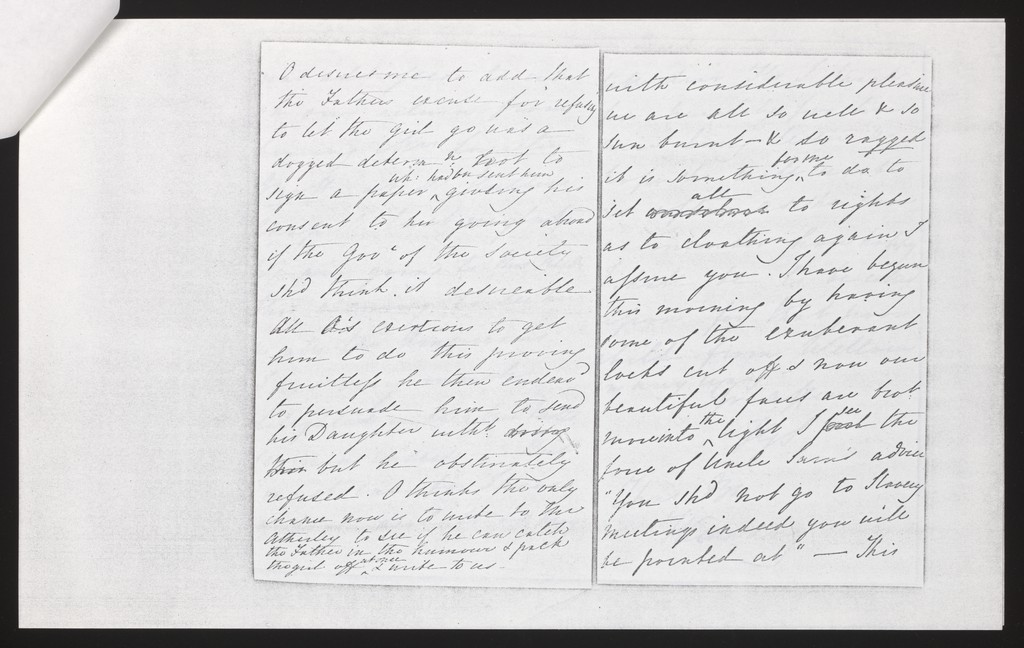 O desires me to add that
the Fathers excuse for refusing
to let the girl go was a
dogged determn not to
wh: had been sent him
sign a paper ^ giving his
consent to her going abroad
if the Govr of the Society
shd think it desireable
All O's exertions to get
him to do this proving
fruitless he then endeavd
to persuade him to send
his Daughter witht doing
this but he obstinately
refused. O thinks the only
chance now is to write to Mr
Atherley to see if he can catch
the Father in the humour & pack
the girl off at once & write to us –
with considerable pleasure
we are all so well & so
sun burnt – & so ragged
for me
it is something ^ to do to
all
set to rights
as to cloathing again I
assure you. I have begun
this morning by having
some of the exuberant
locks cut off & now our
beautiful faces are brot
more into the light I see the
force of Uncle Sam's advice
"You shd not go to Slavery
meetings indeed you will
be pointed at" — This